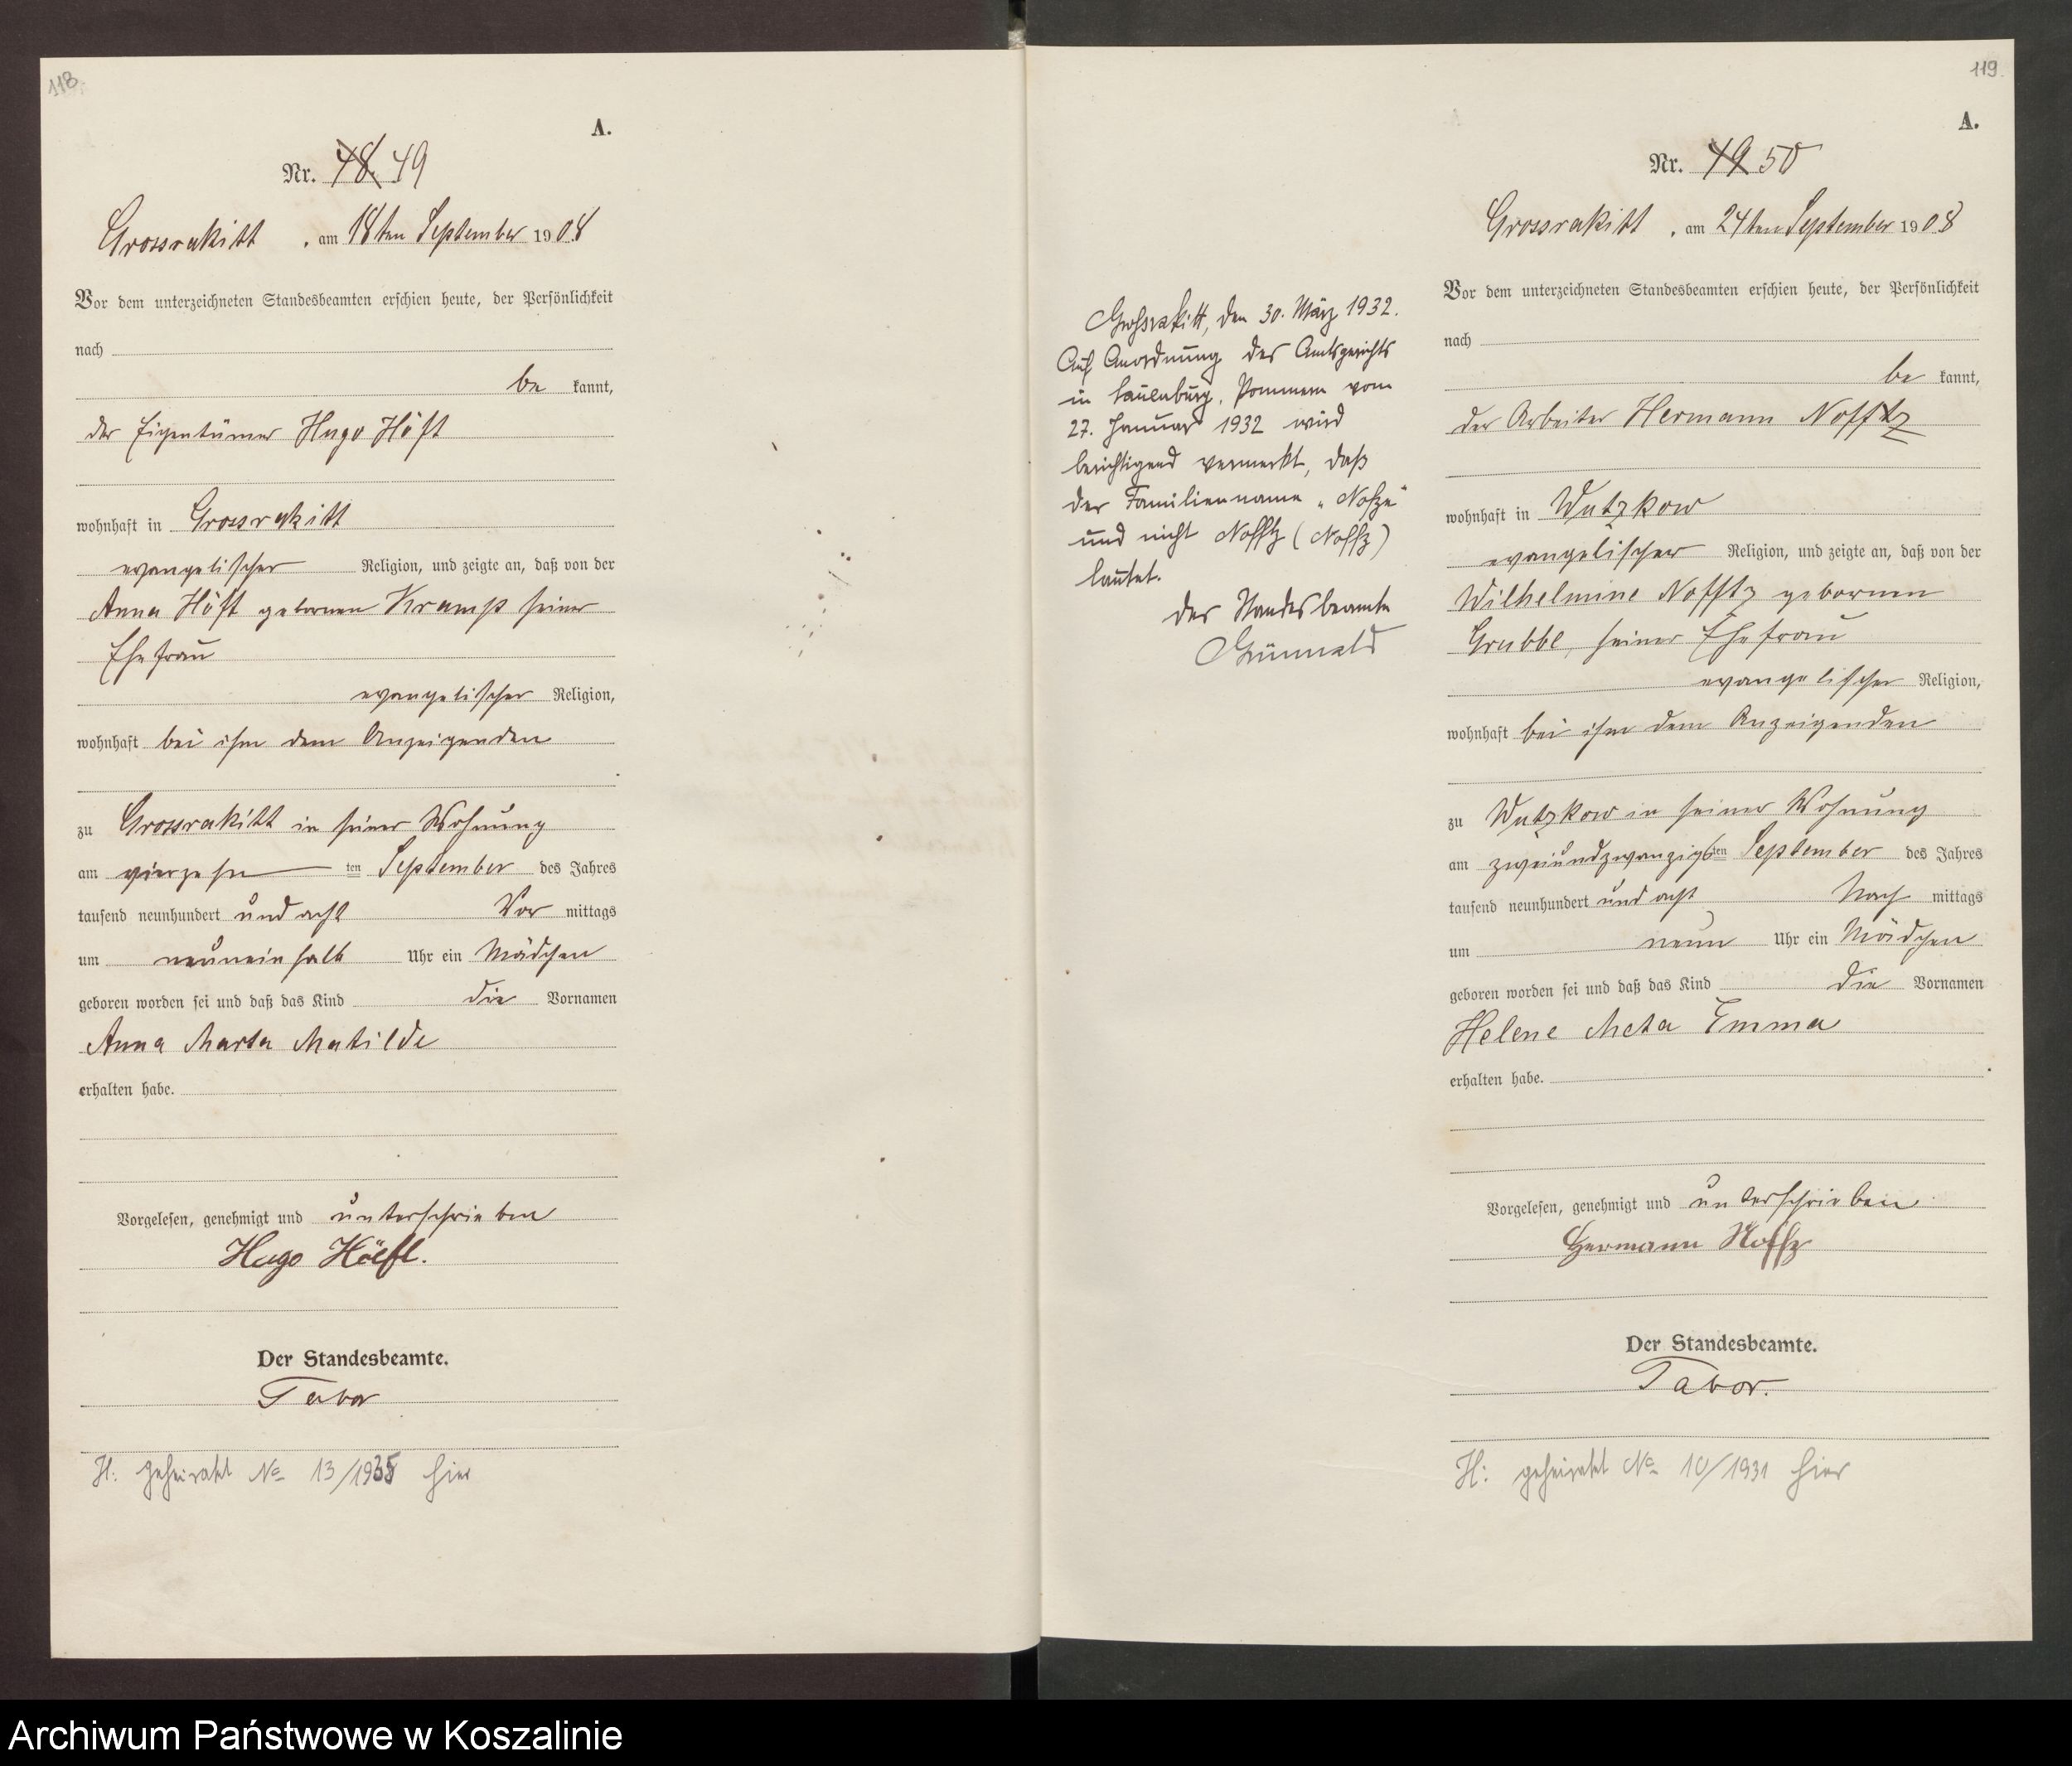 118.
A.
Nr. 48. 49
Grossrakitt, am 18ten September 1908
Vor dem unterzeichneten Standesbeamten erschien heute, der Persönlichkeit
nach
be kannt,
der Eigentümer Hugo Höft
wohnhaft in Grossrakitt
evangelischer Religion, und zeigte an, daß von der
Anna Höft gebornen Kramp seiner
Ehefrau
evangelischer Religion,
wohnhaft bei ihm dem Anzeigenden
zu Grossrakitt in seiner Wohnung
am vierzehn ten September des Jahres
tausend neunhundert und acht Vor mittags
um neuneinhalb Uhr ein Mädchen
geboren worden sei und daß das Kind die Vornamen
Anna Marta Matilde
erhalten habe.
Vorgelesen, genehmigt und unterschrieben
Hugo Höeft.
Der Standesbeamte.
Tabor
H: geheiratet No 13/1935 hier
Grossrakitt, den 30. März 1932.
Auf Anordnung des Amtsgerichts
in Lauenburg, Pommern vom
27. Januar 1932 wird
berichtigend vermerkt, daß
der Familienname „Nofze"
und nicht Nofftz (Noffz)
lautet.
Der Standesbeamte
Grünwald
119.
A.
Nr. 49 50
Grossrakitt, am 24ten September 1908
Vor dem unterzeichneten Standesbeamten erschien heute, der Persönlichkeit
nach
be kannt,
der Arbeiter Hermann Nofftz
wohnhaft in Wutzkow
evangelischer Religion, und zeigte an, daß von der
Wilhelmine Nofftz gebornen
Grubbe, seiner Ehefrau
evangelischer Religion,
wohnhaft bei ihm dem Anzeigenden
zu Wutzkow in seiner Wohnung
am zweiundzwanzigsten September des Jahres
tausend neunhundert und acht Nach mittags
um neun Uhr ein Mädchen
geboren worden sei und daß das Kind die Vornamen
Helene Meta Emma
erhalten habe.
Vorgelesen, genehmigt und unterschrieben
Hermann Noffz
Der Standesbeamte.
Tabor.
H: geheiratet No 10/1931 hier
Archiwum Państwowe w Koszalinie